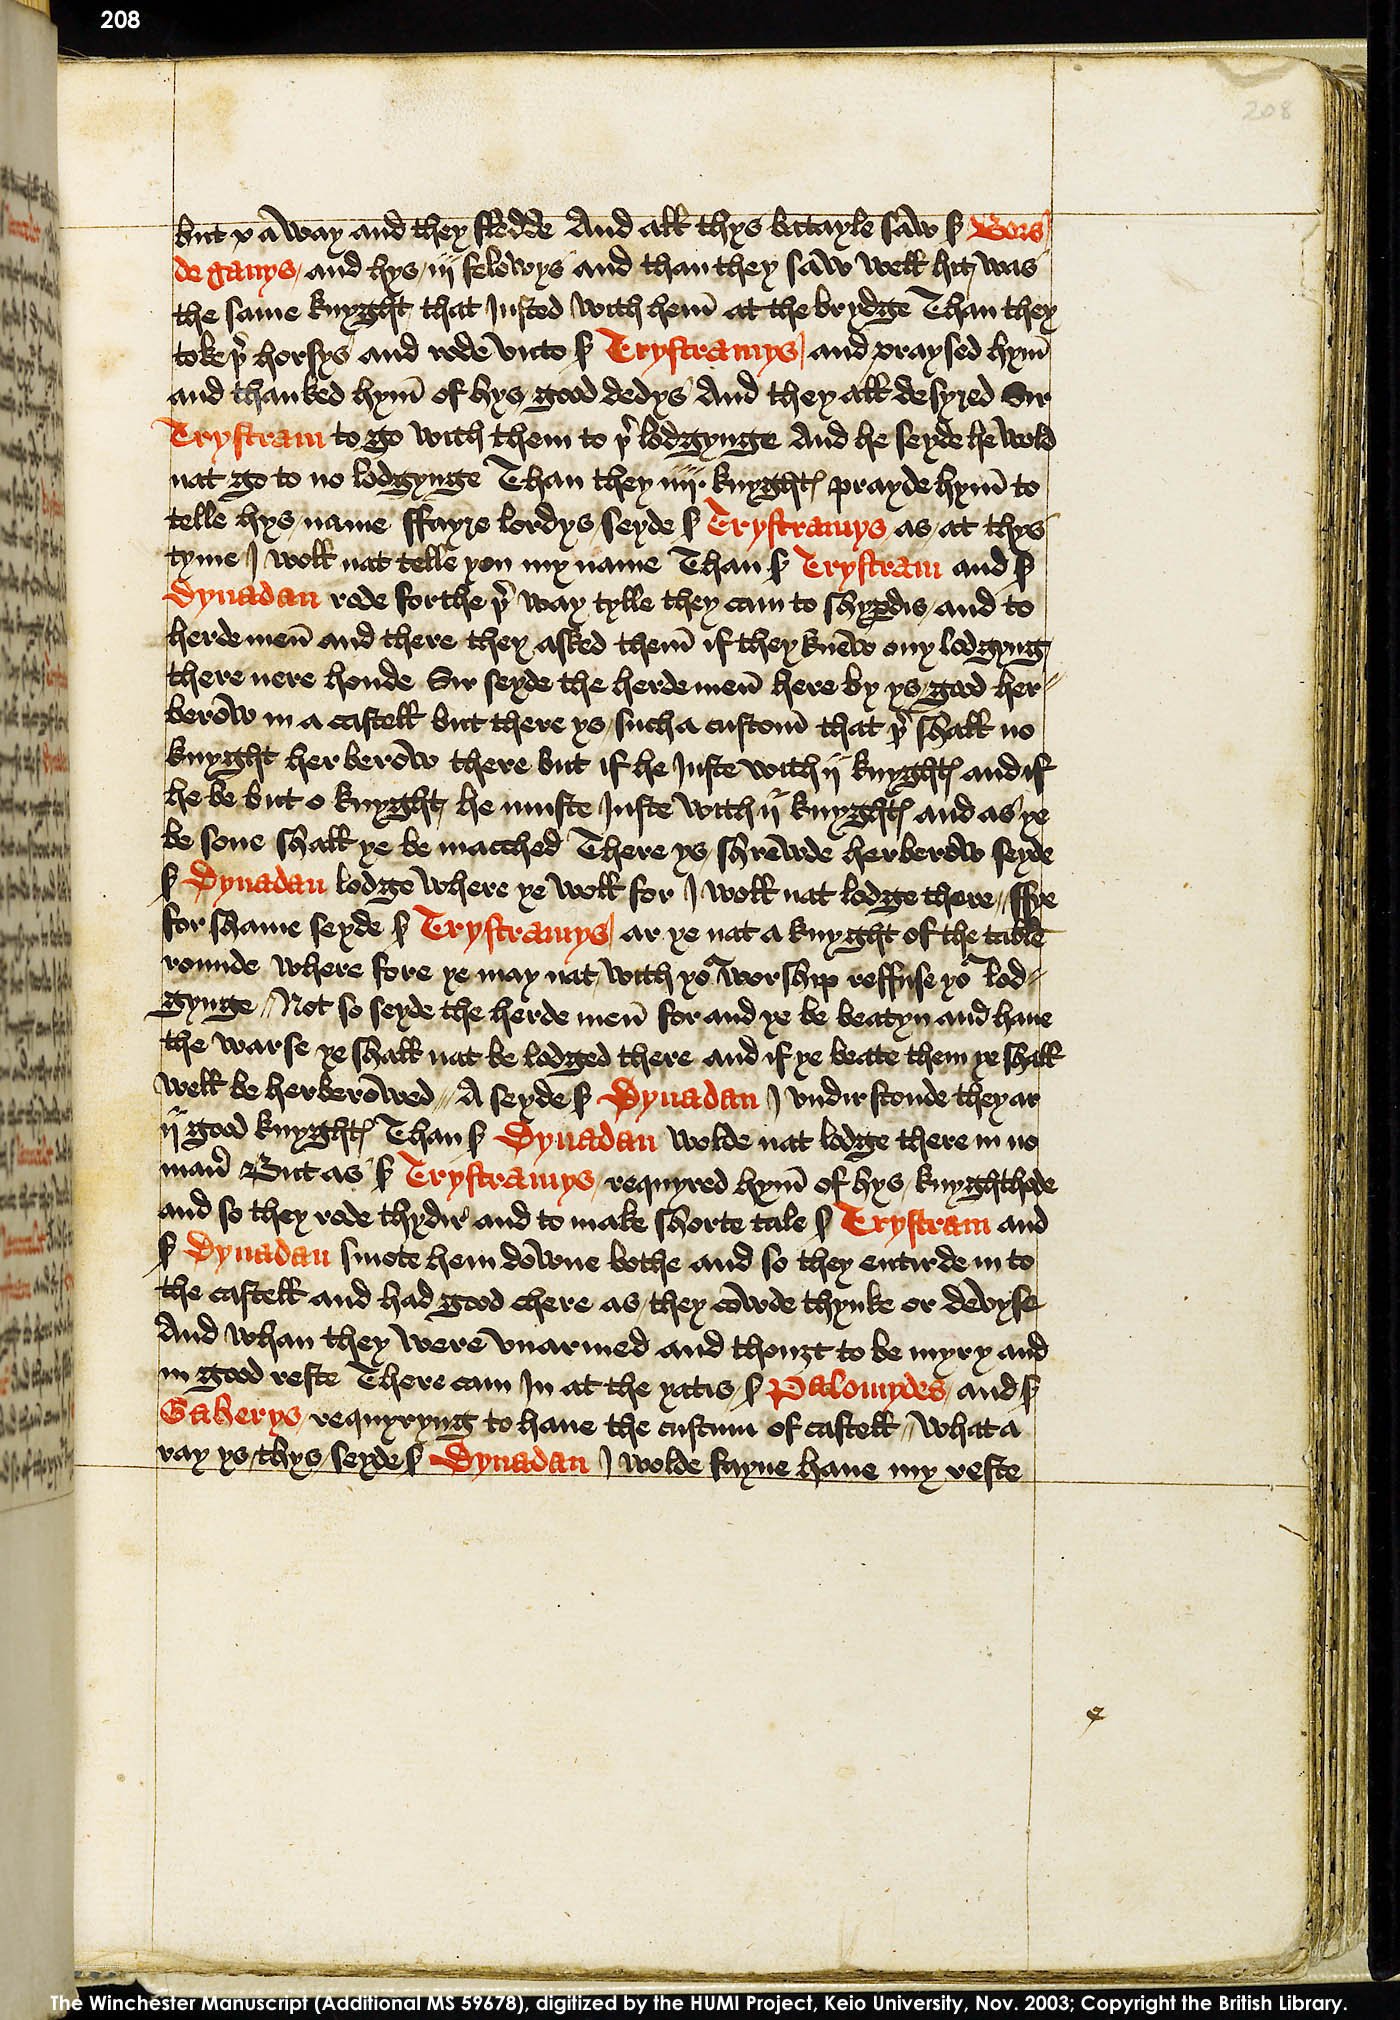 208
208
but v a way and they fledde And all thys batayle saw s Bors
de ganys and hys iij felowys and than they saw well hit was
the same knyght that Iusted with hem at the brydge Than they
toke þr horsys and rode vnto s Trystramys and praysed hym
and thanked hym of hys good dedys And they all desyred Sir
Trystram to go with them to þr lodgynge And he seyde he wold
nat go to no lodgynge Than they iiij knyghtꝭ prayde hym to
telle hys name ffayre lordys seyde s Trystramys as at thys
tyme I woll nat telle you my name Than s Trystram and s
Dynadan rode forthe þr way tylle they cam to shyꝑdis and to
herde men and there they asked them if they knew ony lodgyng
there nere honde Sir seyde the herde men here by ys good her-
berow in a castell but there ys such a custom that þr shall no
knyght herberow there but if he Iuste with ij knyghtꝭ and if
he be but o knyght he muste Iuste with ij knyghtꝭ and as ye
be sone shall ye be macched There ys shrewde herberow seyde
s Dynadan lodge where ye woll for I woll nat lodge there // ffye
for shame seyde s Trystramys ar ye nat a knyght of the table
rounde where fore ye may nat with yor worship reffuse yor lod-
gynge // Not so seyde the herde men for and ye be beatyn and haue
the warse ye shall nat be lodged there and if ye beate them ye shall
well be herberowed // A seyde s Dynadan I vndir stonde they ar
ij good knyghtꝭ Than s Dynadan wolde nat lodge there in no
maner But as s Trystramys requyred hym of hys knyghthode
and so they rode thydir and to make shorte tale s Trystram and
s Dynadan smote hem downe bothe and so they entirde in to
the castell and had good chere as they cowde thynke or devyse
And whan they were vnarmed and thouȝt to be myry and
in good reste There cam In at the yatis s Palomydes and s
Gaherys requyryng to haue the custum of castell // What a
ray ys thys seyde s Dynadan I wolde fayne haue my reste
The Winchester Manuscript (Additional MS 59678), digitized by the HUMI Project, Keio University, Nov. 2003; Copyright the British Library.